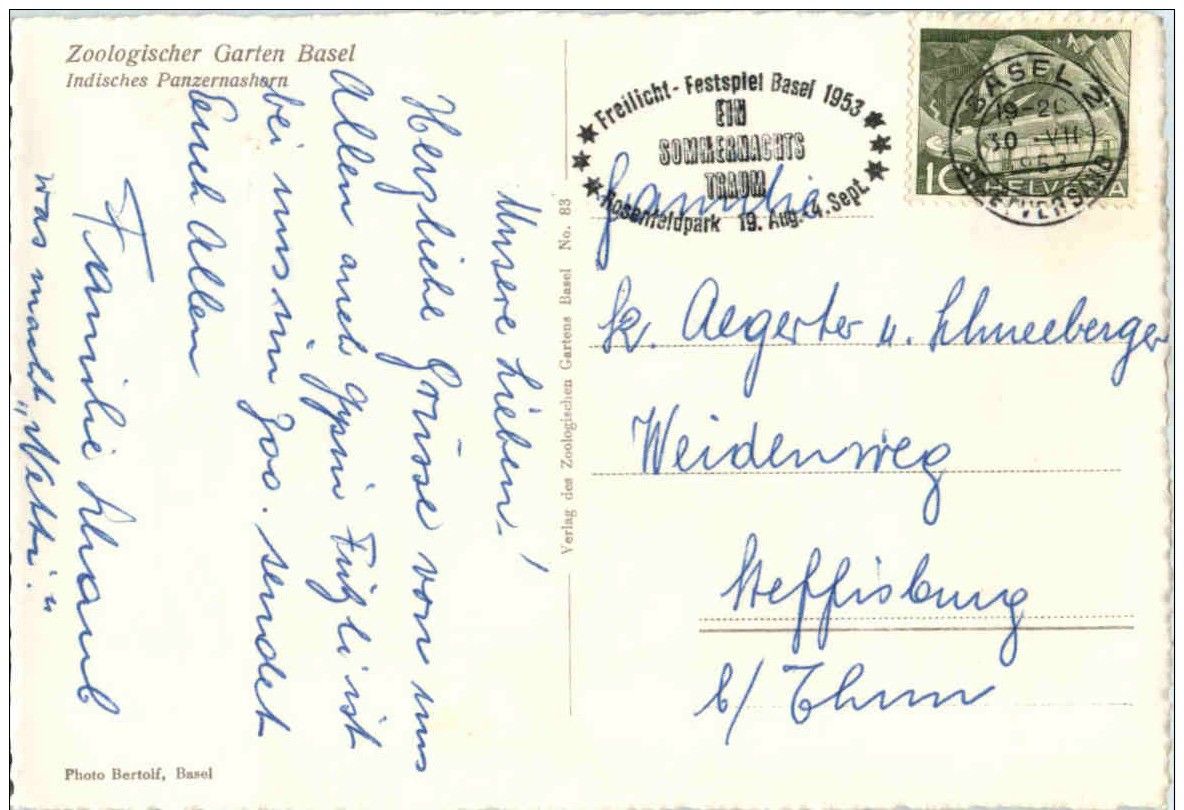 Zoologischer Garten Basel
Indisches Panzernashorn
Unsere Lieben!
Herzliche Grüsse von uns
Allen auch Fritzli ist
bei uns im Zoo. sendet
Euch Allen
Familie Schaub
was macht „Netti."
Photo Bertolf, Basel
Verlag des Zoologischen Gartens Basel No. 83
Freilicht - Festspiel Basel 1953
EIN
SOMMERNACHTS
TRAUM
Rosenfeldpark 19. Aug.-4. Sept.
BASEL 2
19-20
30. VII
1953
BRIEFVERSAND
10 HELVETIA
Familie
Fr. Aegerter u. Schneeberger
Weidenweg
Steffisburg
b/ Thun